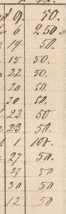 9 50.
6 250
19 50.
15 50.
22 50.
20 50.
20 50.
22 50.
22 50.
1 100.
27 50
25 50
30 50
12 50